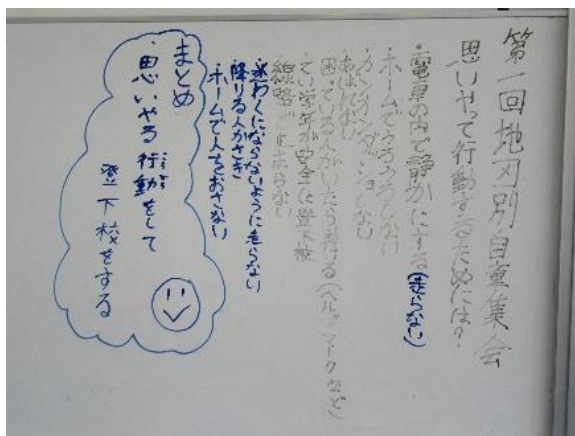 第一回地区別自重集会
思いやって行動するためには?
・電車の内で静かにする(走らない)
・ホームでうろうろしない
・カンカンダッシュをしない
あばれない
・困っている人がいたら助ける(ヘルプマークなど)
・てい学年が安全に登下校
・線路で止まらない
・迷わくにならないように走らない
・降りる人がさき
・ホームで人をおさない
まとめ
・思いやる行動をして
登下校をする